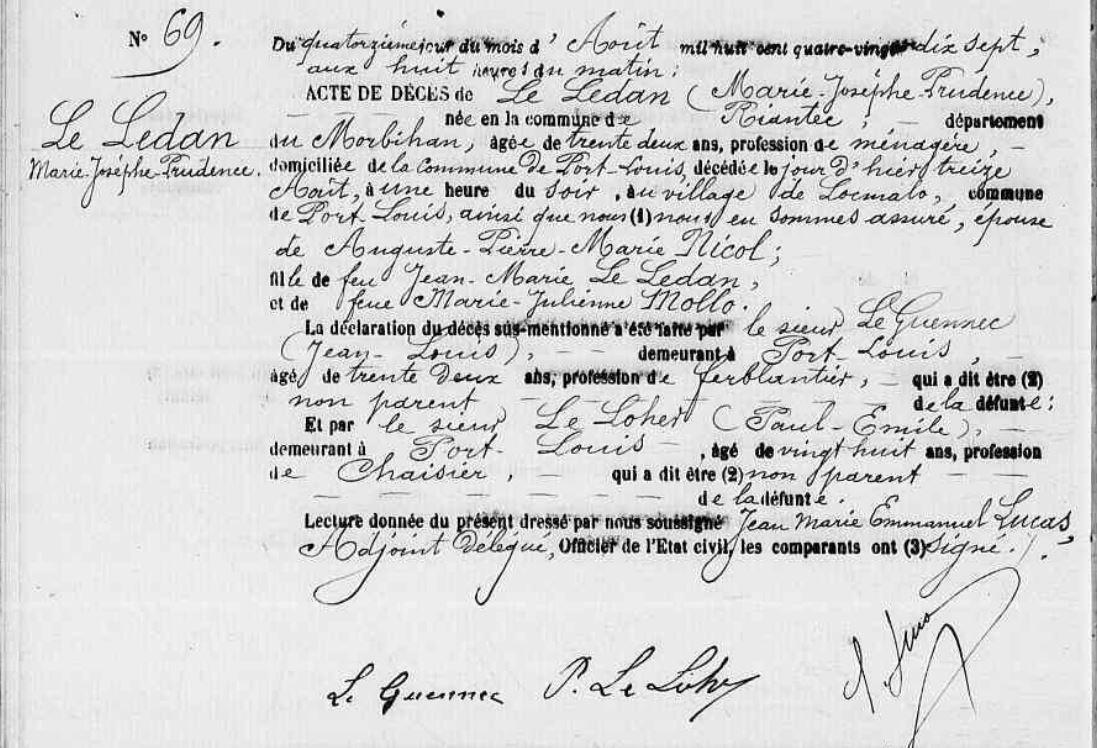 N° 69.
Le Ledan
Marie-Joséphe-Prudence.
Du quatorzième jour du mois d' Août mil huit cent quatre-vingt dix sept,
aux huit heures du matin :
ACTE DE DÉCÈS de Le Ledan (Marie-Joséphe-Prudence),
née en la commune de Riantec, département
du Morbihan, âgée de trente deux ans, profession de ménagère,
domiciliée de la Commune de Port-Louis, décédée le jour d'hier treize
Août, à une heure du soir, au village de Locmalo, commune
de Port-Louis, ainsi que nous (1) nous en sommes assuré, épouse
de Auguste-Pierre-Marie Nicol;
fille de feu Jean-Marie Le Ledan,
et de feue Marie-Julienne Mollo.
La déclaration du décès sus-mentionné a été faite par le sieur Le Guennec
(Jean-Louis), demeurant à Port-Louis,
âgé de trente deux ans, profession de ferblantier, qui a dit être (2)
non parent de la défunte :
Et par le sieur Le Loher (Paul-Emile),
demeurant à Port-Louis, âgé de vingt huit ans, profession
de Chaisier, qui a dit être (2) non parent
de la défunte.
Lecture donnée du présent dressé par nous soussigné Jean Marie Emmanuel Lucas,
Adjoint Délégué, Officier de l'Etat civil, les comparants ont (3) signé ./.
Le Guennec P. Le Loher